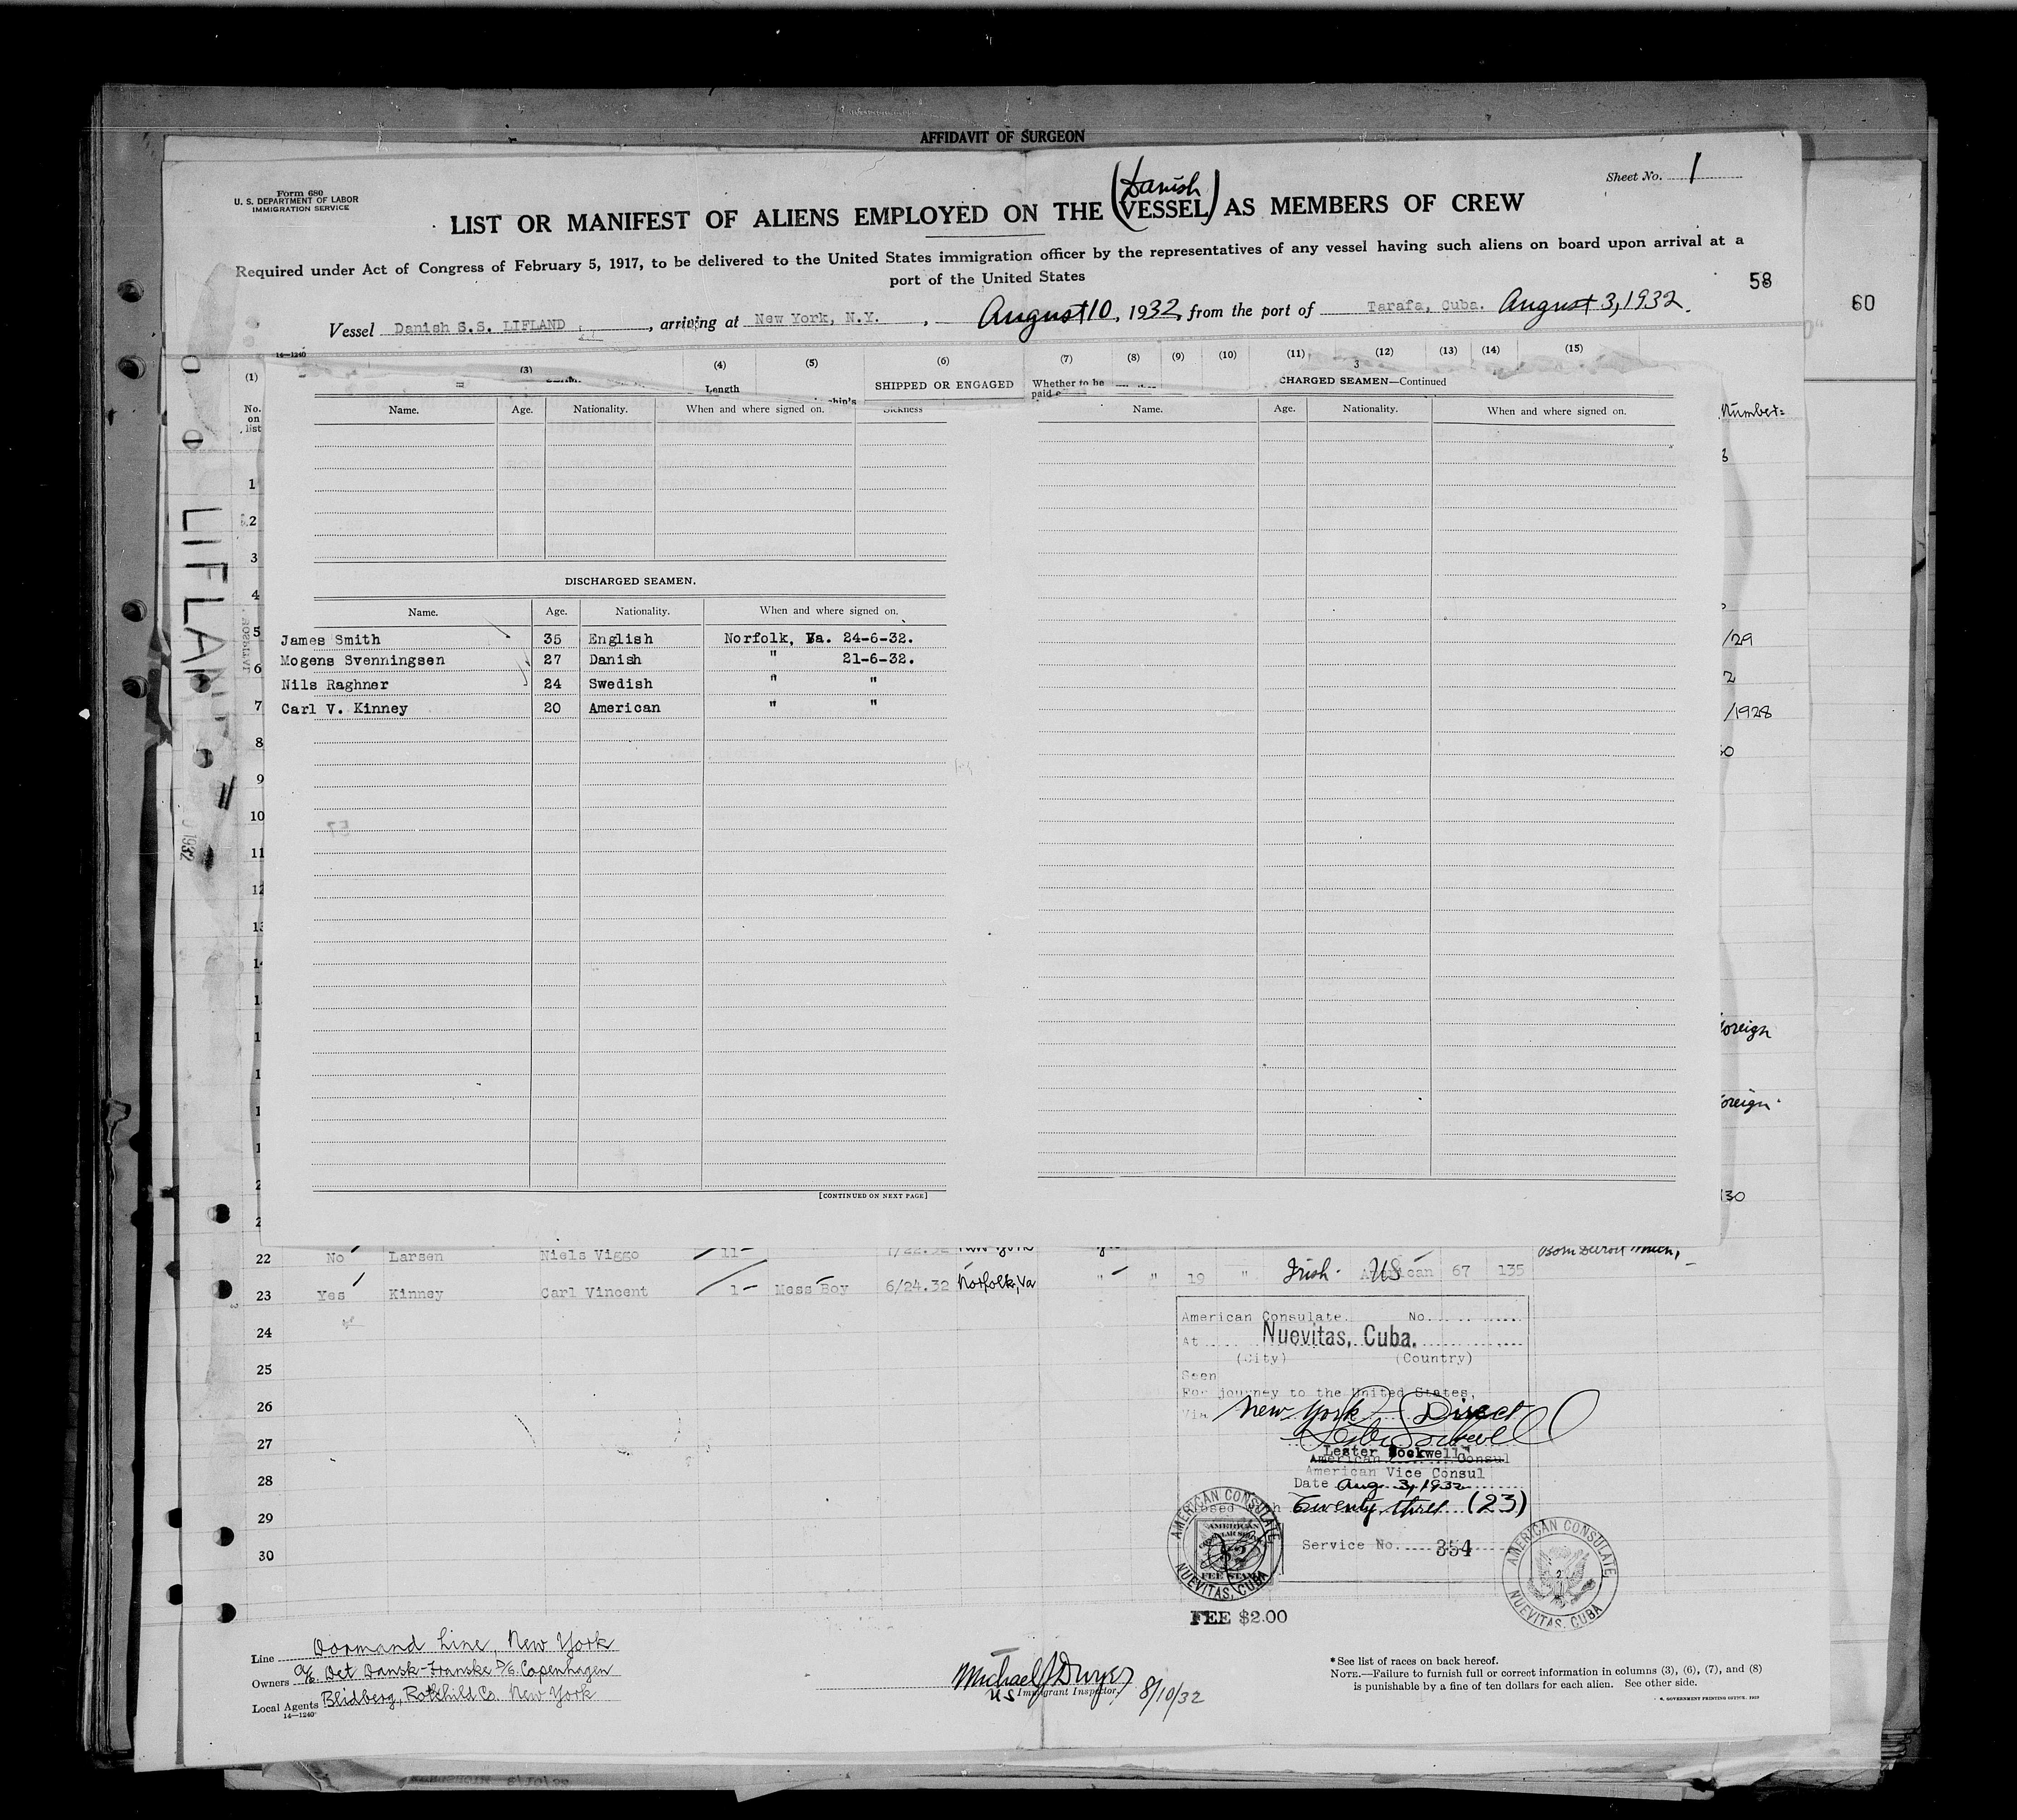 AFFIDAVIT OF SURGEON
Form 680
U. S. DEPARTMENT OF LABOR
IMMIGRATION SERVICE
Sheet No. 1
(Danish)
LIST OR MANIFEST OF ALIENS EMPLOYED ON THE VESSEL AS MEMBERS OF CREW
Required under Act of Congress of February 5, 1917, to be delivered to the United States immigration officer by the representatives of any vessel having such aliens on board upon arrival at a
port of the United States
58
60
Vessel Danish S.S. LIFLAND, arriving at New York, N.Y., August 10, 1932, from the port of Tarafa, Cuba. August 3, 1932.
14—1240
(1) (3) (4) (5) (6) (7) (8) (9) (10) (11) (12) (13) (14) (15)
3
Length SHIPPED OR ENGAGED Whether to be CHARGED SEAMEN—Continued
paid
No. on list
Name. Age. Nationality. When and where signed on. Sickness
Name. Age. Nationality. When and where signed on.
Number=
1
2
3
LIFLAND
DISCHARGED SEAMEN.
4
Name. Age. Nationality. When and where signed on.
5
James Smith 35 English Norfolk, Va. 24-6-32.
/29
6
Mogens Svenningsen 27 Danish " 21-6-32.
Nils Raghner 24 Swedish " "
7
Carl V. Kinney 20 American " "
/1928
8
9
10
57
11
1932
12
13
oreign
oreign
[CONTINUED ON NEXT PAGE]
30
22 No Larsen Niels Viggo 11 New York
Born Detroit Mich,
23 Yes Kinney Carl Vincent 1 Mess Boy 6/24.32 Norfolk, Va " " 19 " Irish US American 67 135
24
25
26
27
28
29
30
American Consulate. No.
At Nuevitas, Cuba.
(City) (Country)
Seen
For journey to the United States,
Via New York Direct
Lester Sockwell
Lester Sockwell
American Consul
American Vice Consul
Date Aug. 3, 1932
Twenty three (23)
Service No. 354
AMERICAN CONSULATE
NUEVITAS, CUBA
AMERICAN
FEE STAMP
AMERICAN CONSULATE
NUEVITAS, CUBA
FEE $2.00
Line Dormand Line, New York
Owners A/S. Det Dansk-Franske D/S. Copenhagen
Local Agents Blidberg, Rothchild Co. New York
14—1240
Michael J Dwyer
US Immigrant Inspector. 8/10/32
* See list of races on back hereof.
NOTE.—Failure to furnish full or correct information in columns (3), (6), (7), and (8)
is punishable by a fine of ten dollars for each alien. See other side.